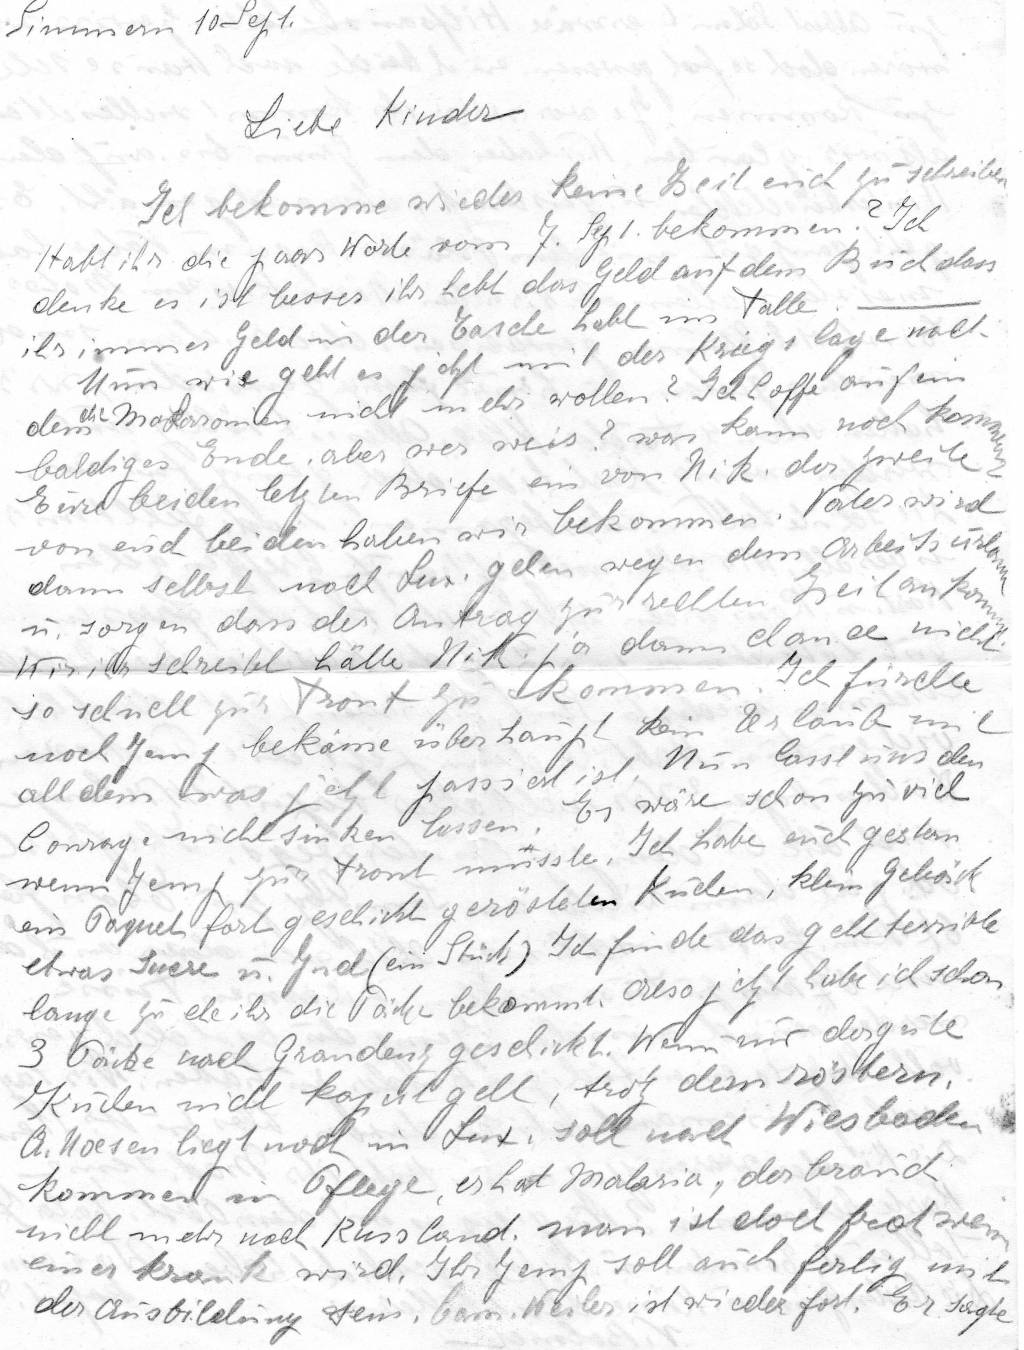 Simmern 10 Sept.
Liebe Kinder
Ich bekomme wieder keine Zeit euch zu schreiben
Habt ihr die paar Worte vom 7. Sept. bekommen? Ich
denke es ist besser ihr hebt das Geld auf dem Buch dass
ihr immer Geld in der Tasche habt im Falle.
Nun wie geht es jetzt mit der Kriegslage nach-
dem die Makaronien nicht mehr wollen? Ich hoffe auf ein
baldiges Ende, aber wer weis? was kann noch kommen
Eure beiden letzten Briefe ein von Nik. der zweite
von euch beiden haben wir bekommen. Vater wird
dann selbst nach Lux. gehen wegen dem Arbeitsurlaub
u. sorgen dass der Antrag zur rechten Zeit ankommt.
Wie ihr schreibt hätte Nik. ja dann chance nicht
so schnell zur Front zu kommen. Ich fürchte
noch Jemp bekäme überhaupt kein Urlaub mit
all dem was jetzt passiert ist. Nun lasst uns den
Courage nicht sinken lassen. Es wäre schon zu viel
wenn Jemp zur Front müsste. Ich habe euch gestern
ein Paquet fort geschickt gerösteten Kuchen, klein Gebäck
etwas Sucre u. Jud (ein Stück) Ich finde das geht terrible
lange zu ehe ihr die Päcke bekommt. Also jetzt habe ich schon
3 Päcke nach Graudenz geschickt. Wenn nur der gute
Kuchen nicht kaput geht, trotz dem röstern.
A. Noesen liegt noch in Lux. soll nach Wiesbaden
kommen in Pflege, er hat Malaria, der brauch
nicht mehr nach Russland. man ist doch froh wenn
einer krank wird. Ihr Jemp soll auch fertig mit
der Ausbildung sein. Weiler ist wieder fort. Er sagte